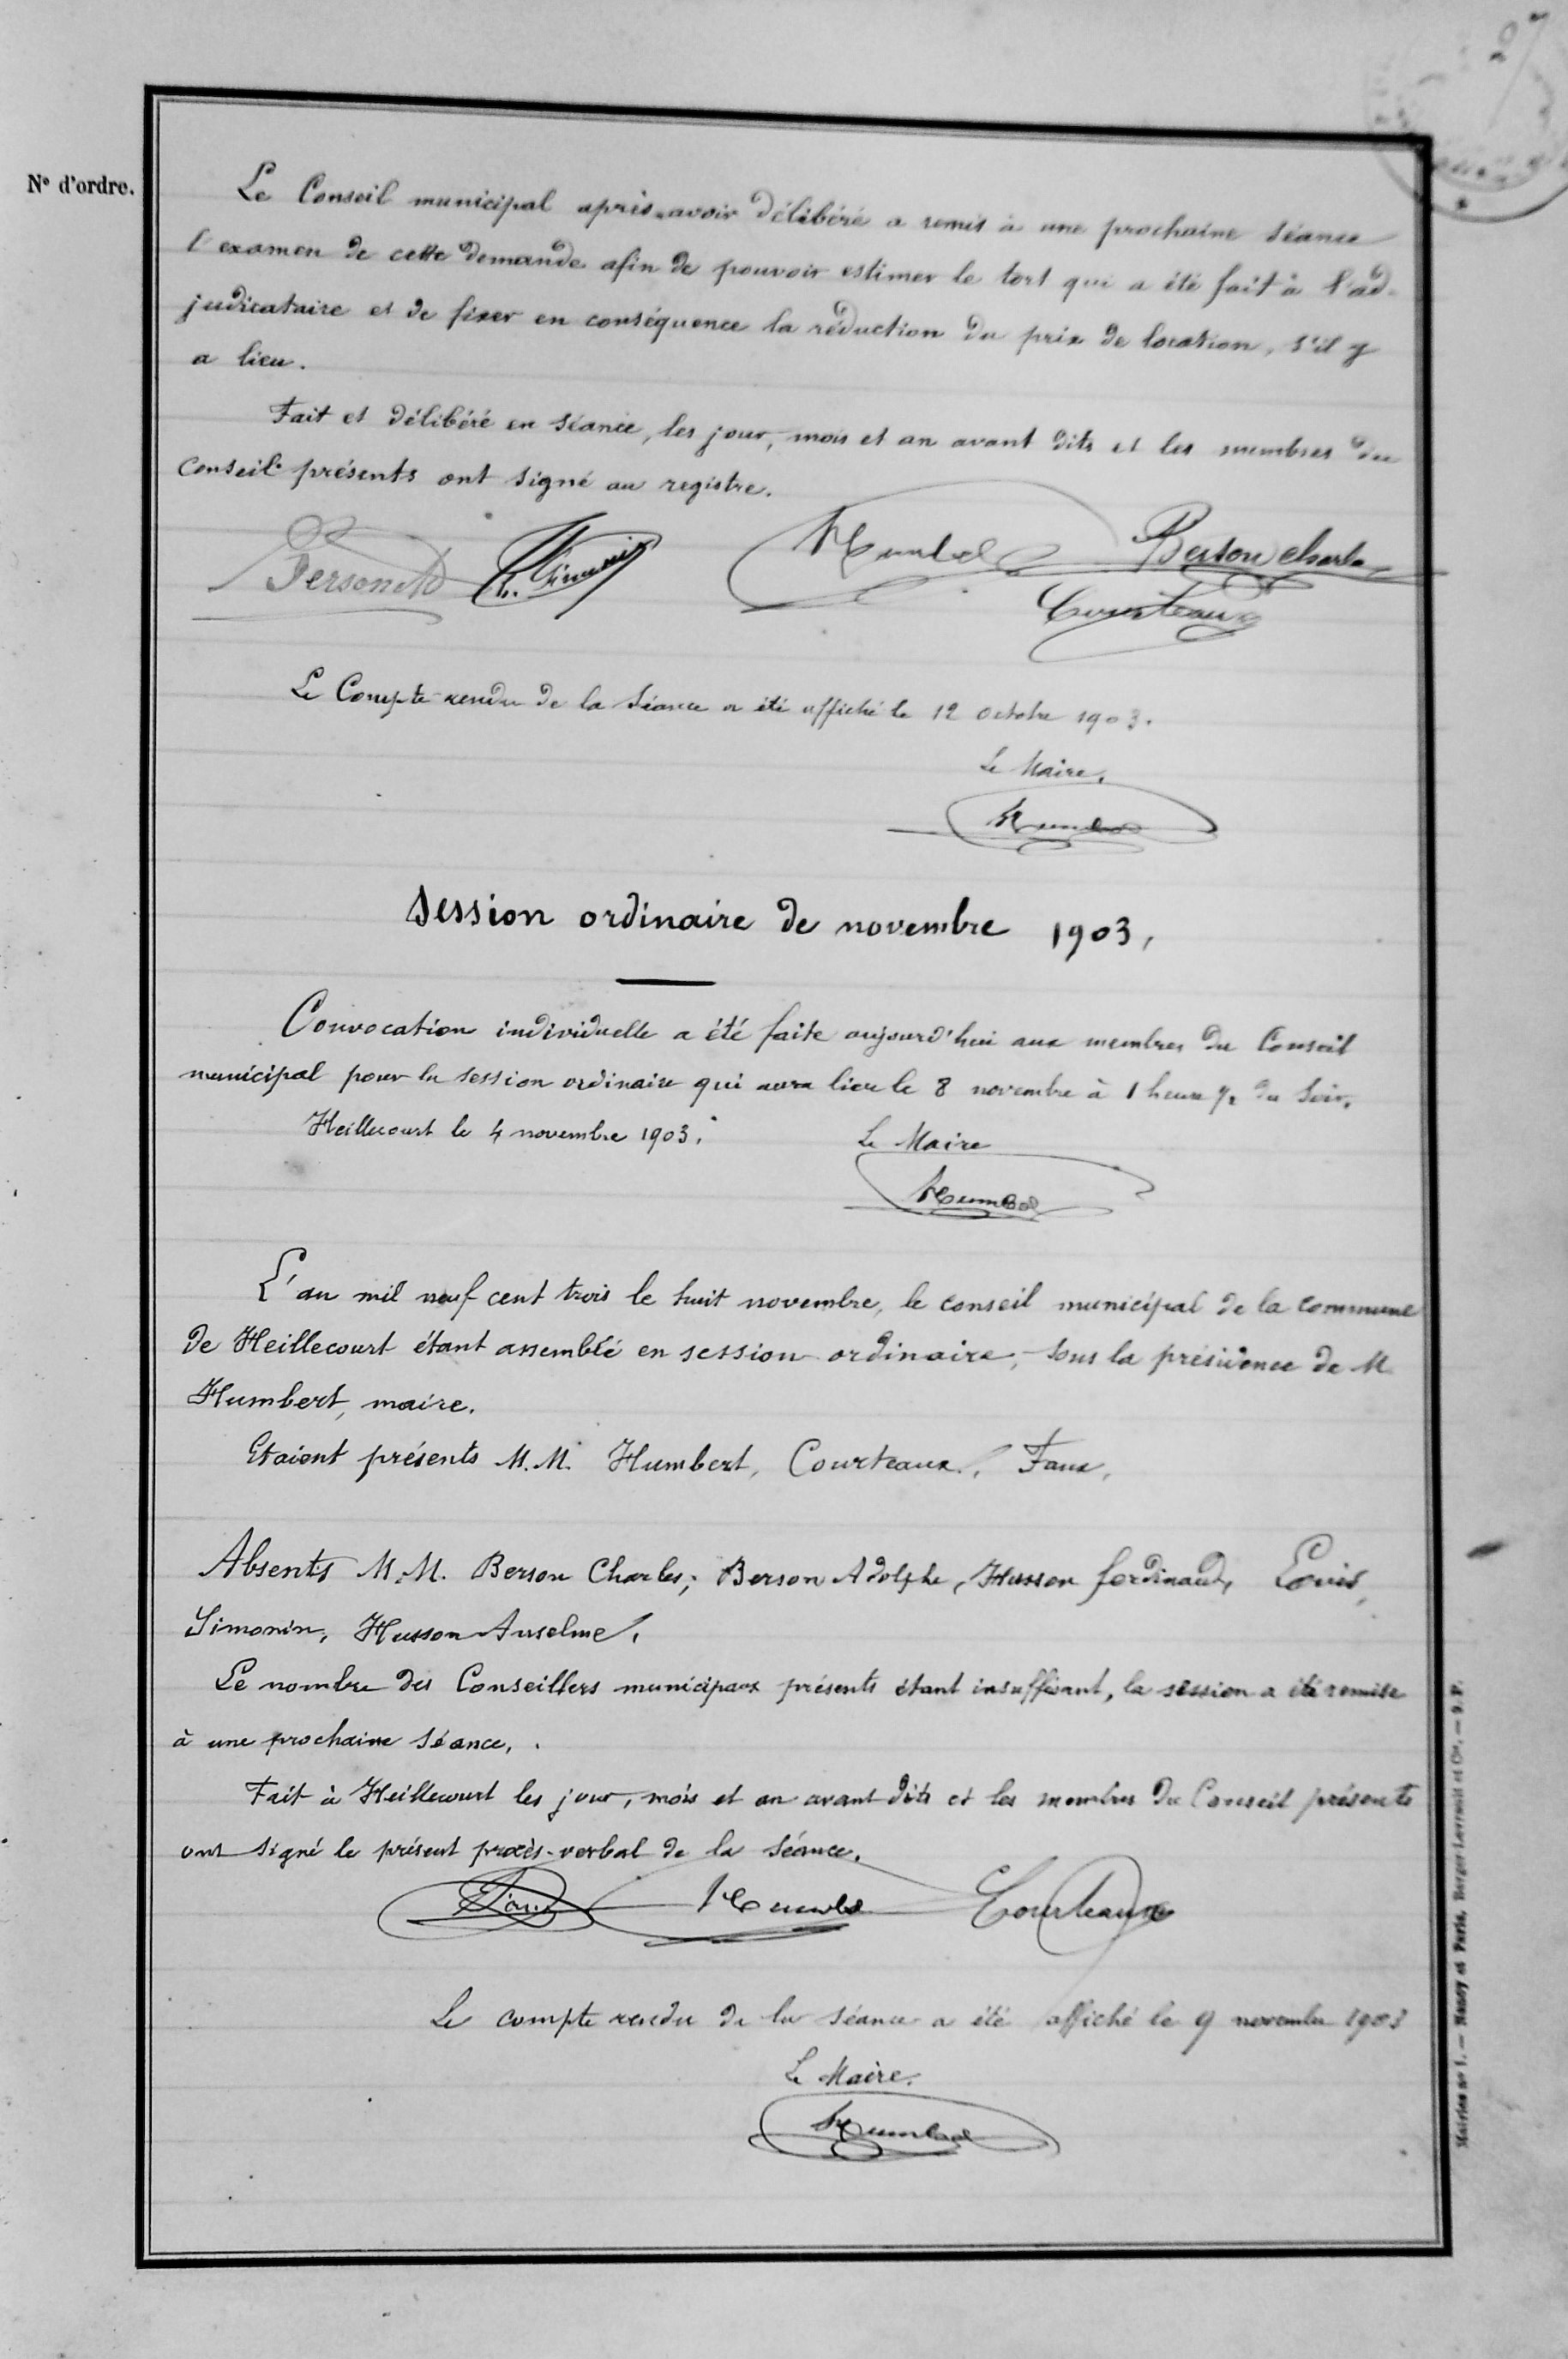 27
N° d'ordre.
Le Conseil municipal après avoir délibéré a remis à une prochaine séance
l'examen de cette demande afin de pouvoir estimer le tort qui a été fait à l'ad-
judicataire et de fixer en conséquence la réduction du prix de location, s'il y
a lieu.
Fait et délibéré en séance, les jour, mois et an avant dits et les membres du
Conseil présents ont signé au registre.
Berson Charles
Courteaux
Le Compte-rendu de la séance a été affiché le 12 octobre 1903.
Le Maire,
Session ordinaire de novembre 1903,
Convocation individuelle a été faite aujourd'hui aux membres du Conseil
municipal pour la session ordinaire qui aura lieu le 8 novembre à 1 heure 1/2 du soir.
Heillecourt le 4 novembre 1903.
Le Maire
L'an mil neuf cent trois le huit novembre, le conseil municipal de la commune
de Heillecourt étant assemblé en session ordinaire, sous la présidence de M
Humbert, maire.
Etaient présents M.M. Humbert, Courteaux, Faux,
Absents M.M. Berson Charles, Berson Adolphe, Husson ferdinand, Louis,
Simonin, Husson Anselme,
Le nombre des Conseillers municipaux présents étant insuffisant, la session a été remise
à une prochaine séance.
Fait à Heillecourt les jour, mois et an avant dits et les membres du Conseil présents
ont signé le présent procès-verbal de la séance.
Faux Humbert Courteaux
Le compte rendu de la séance a été affiché le 9 novembre 1903
Le Maire.
Humbert
Mairies n° 1. — Nancy et Paris, Berger-Levrault et Cie. — 9.F.